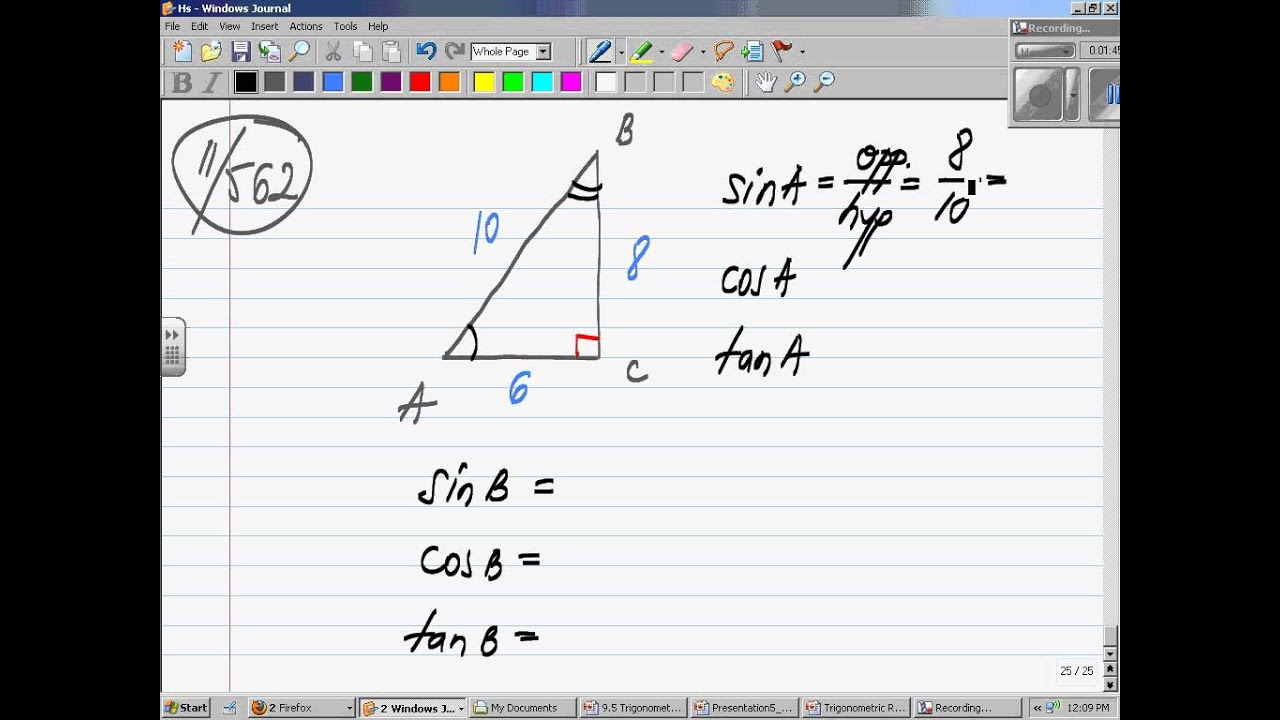 Hs - Windows Journal
File Edit View Insert Actions Tools Help
Recording...
0:01:45
Whole Page
B I
11/562
B
10
8
A
6
C
sinA = opp. = 8 =
hyp 10
cosA
tanA
sinB =
cosB =
tanB =
25 / 25
Start
2 Firefox
2 Windows J...
My Documents
9.5 Trigonomet...
Presentation5_...
Trigonometric R...
Recording...
12:09 PM